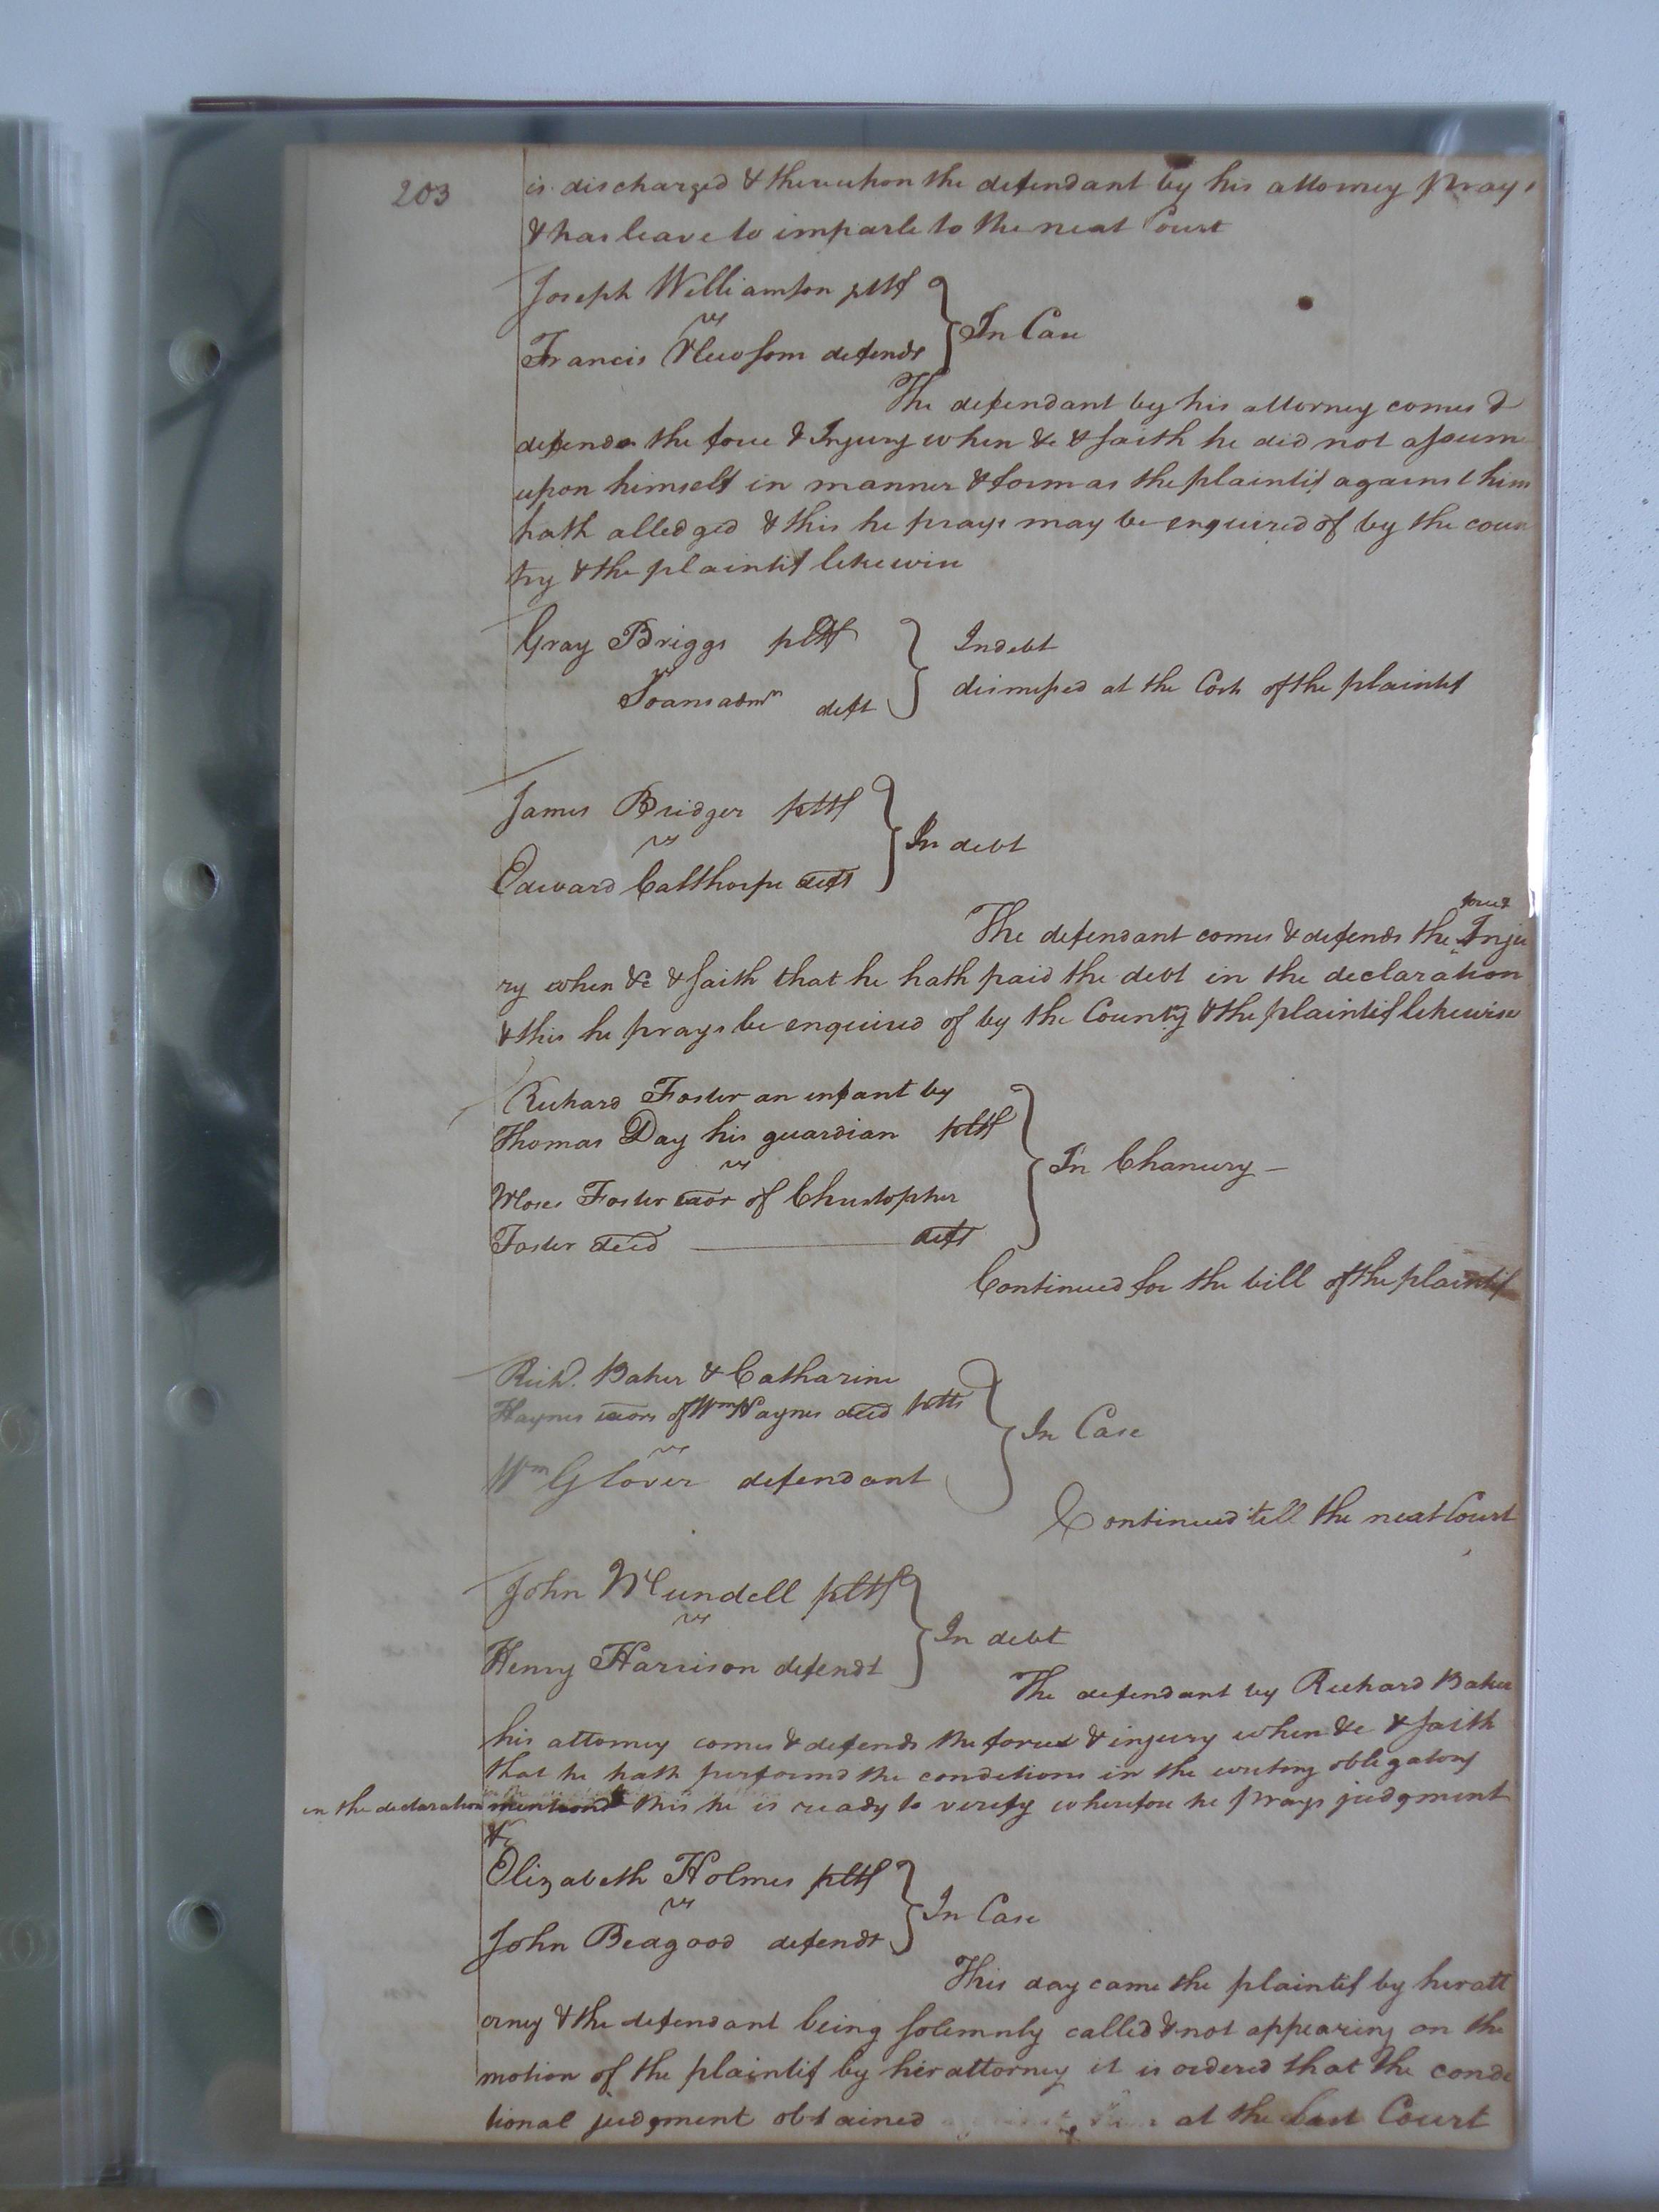 203
is discharged & thereupon the defendant by his attorney prays
& has leave to imparle to the next Court
Joseph Williamson pltf
vs
Francis Newsom defendt
In Case
The defendant by his attorney comes &
defends the force & Injury when &c & saith he did not assume
upon himself in manner & form as the plaintif against him
hath alledged & this he prays may be enquired of by the coun
try & the plaintif likewise
Gray Briggs pltf
vs
admr deft
In debt
dismissed at the Costs of the plaintif
James Bridger pltf
vs
Edward Calthorpe deft
In debt
force &
The defendant comes & defends the Inju
ry when &c & saith that he hath paid the debt in the declaration
& this he prays be enquired of by the Country & the plaintif likewise
Richard Foster an infant by
Thomas Day his guardian pltf
vs
Moses Foster exor of Christopher
Foster decd deft
In Chancery
Continued for the bill of the plaintif
Richd. Baker & Catharine
Haynes exors of Wm Haynes decd pltfs
vs
Wm Glover defendant
In Case
Continued till the next Court
John Mundell pltf
vs
Henry Harrison defendt
In debt
The defendant by Richard Baker
his attorney comes & defends the force & injury when &c & saith
that he hath performd the conditions in the writing obligatory
in the declaration mentiond & this he is ready to verify wherefore he prays judgment
&c
Elizabeth Holmes pltf
vs
John Bedgood defendt
In Case
This day came the plaintif by her att
orney & the defendant being solemnly called & not appearing on the
motion of the plaintif by her attorney it is ordered that the condi
tional judgment obtained at the last Court